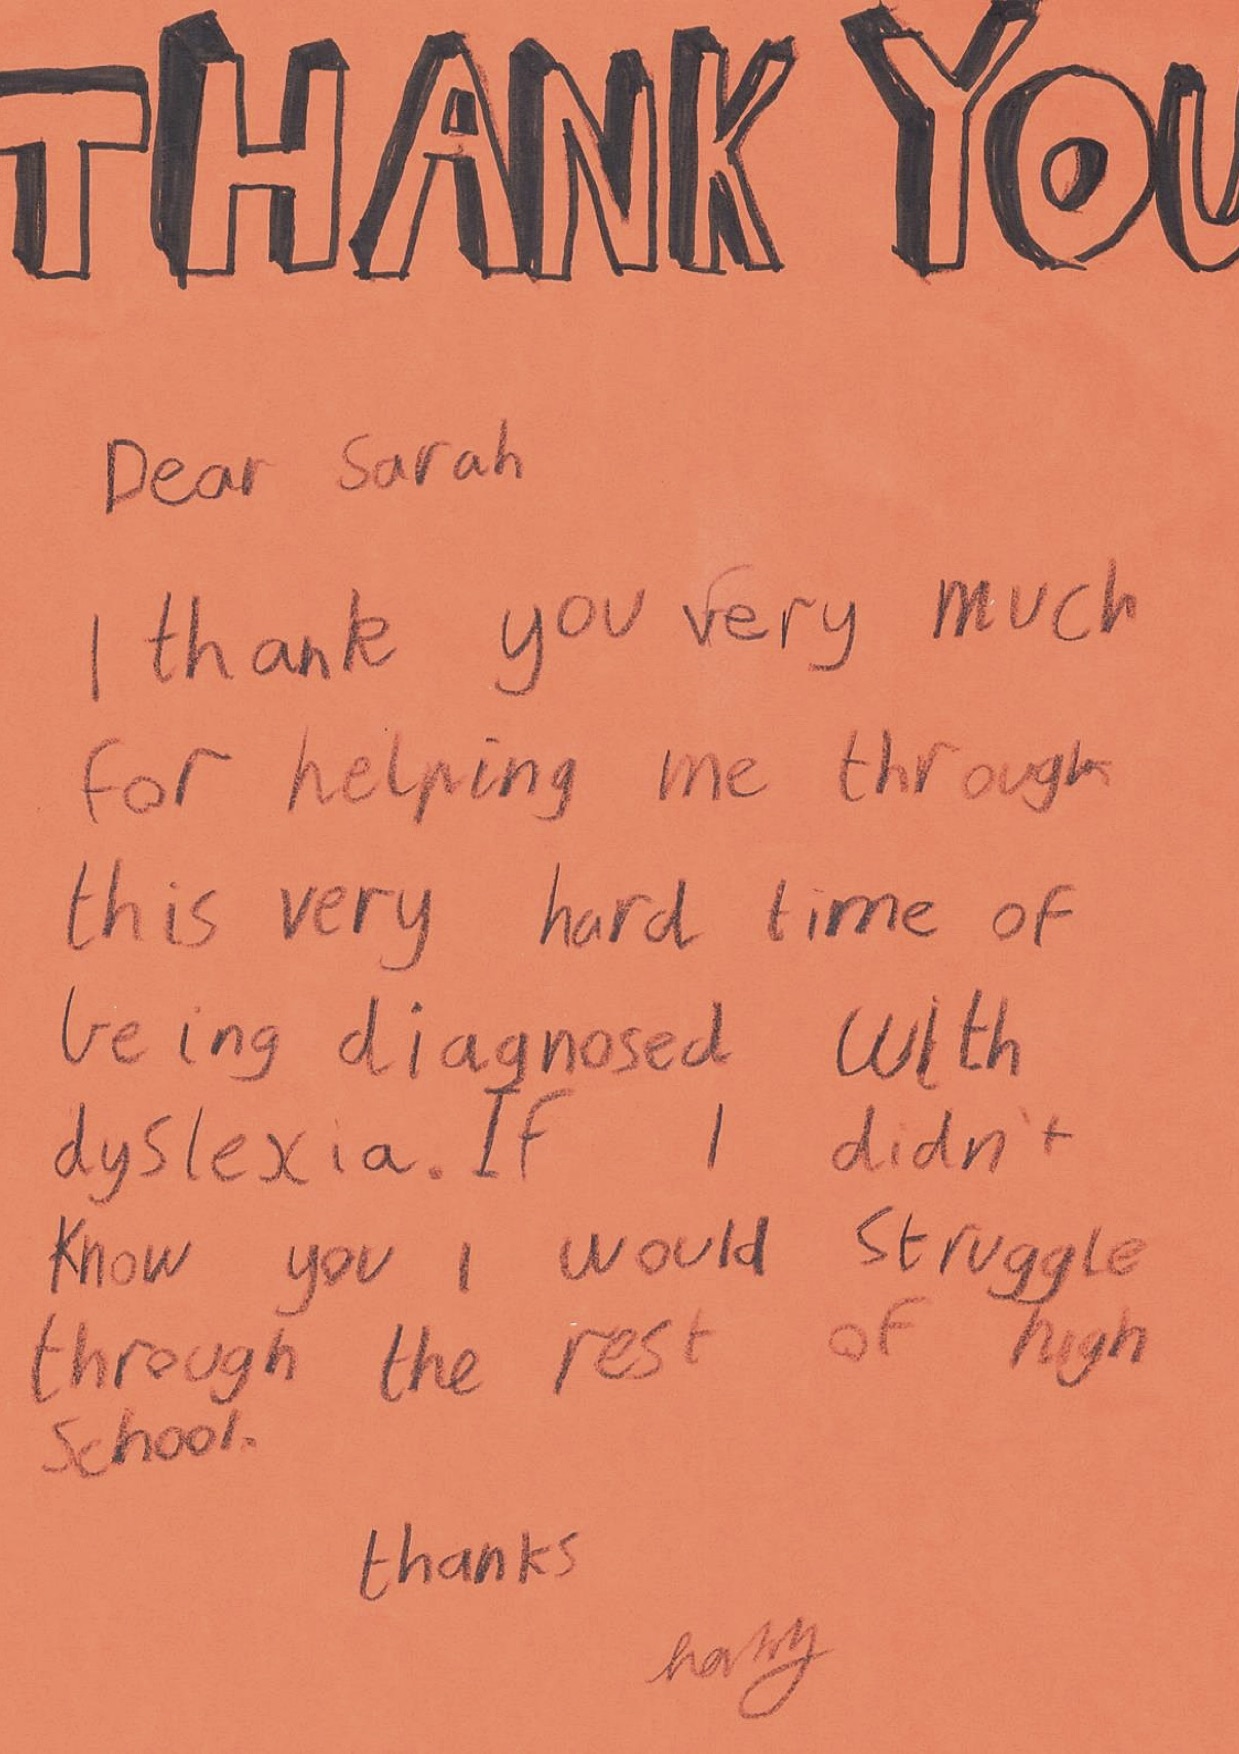 THANK YOU
Dear Sarah
I thank you very much
for helping me through
this very hard time of
being diagnosed with
dyslexia. If I didn't
know you I would struggle
through the rest of high
school.
thanks
harry